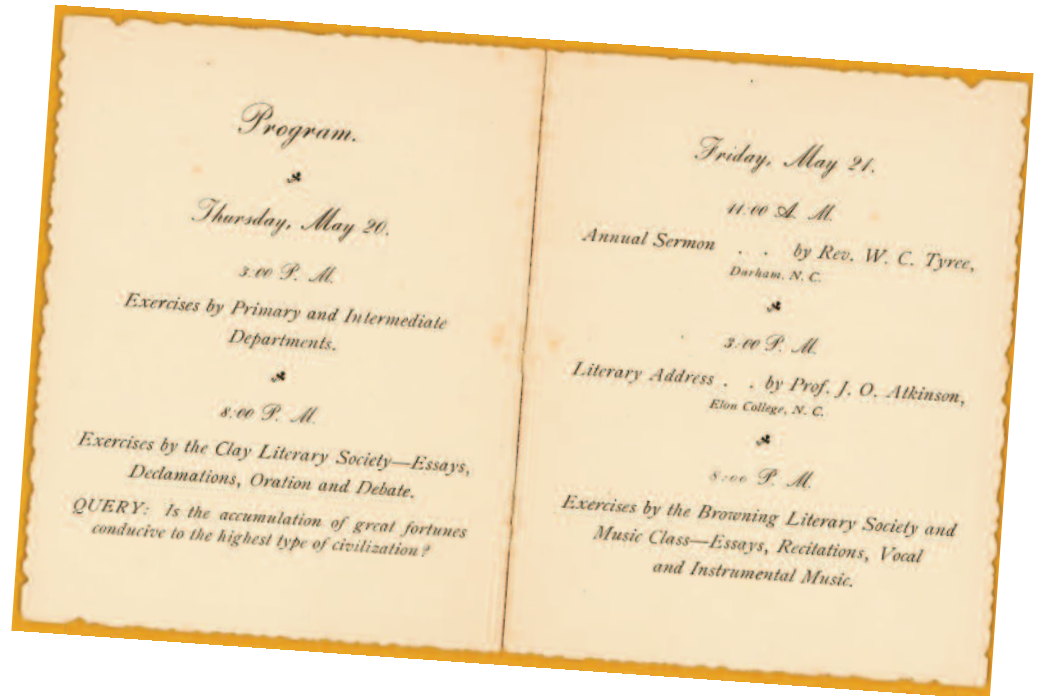 Program.
Thursday, May 20.
3.00 P. M.
Exercises by Primary and Intermediate
Departments.
8:00 P. M.
Exercises by the Clay Literary Society—Essays,
Declamations, Oration and Debate.
QUERY: Is the accumulation of great fortunes
conducive to the highest type of civilization?
Friday, May 21.
11:00 A. M.
Annual Sermon . . by Rev. W. C. Tyree,
Durham, N. C.
3:00 P. M.
Literary Address . . by Prof. J. O. Atkinson,
Elon College, N. C.
8:00 P. M.
Exercises by the Browning Literary Society and
Music Class—Essays, Recitations, Vocal
and Instrumental Music.